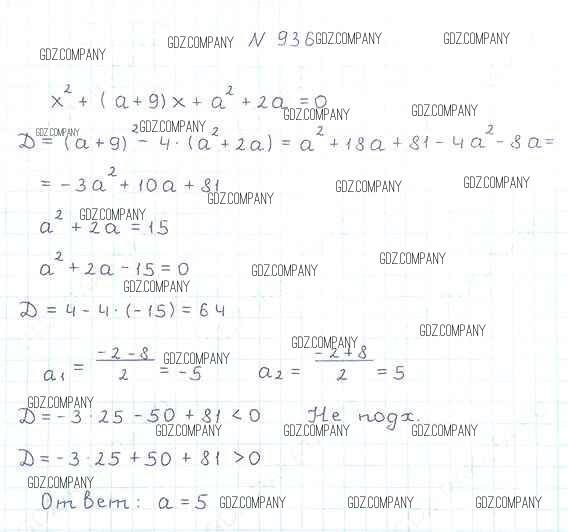 N 936
x² + (a+9)x + a² + 2a = 0
D = (a+9)² - 4·(a²+2a) = a² + 18a + 81 - 4a² - 8a =
= -3a² + 10a + 81
a² + 2a = 15
a² + 2a - 15 = 0
D = 4 - 4·(-15) = 64
a₁ = (-2-8)/2 = -5 a₂ = (-2+8)/2 = 5
D = -3·25 - 50 + 81 < 0 Не подх.
D = -3·25 + 50 + 81 > 0
Ответ: a = 5
GDZ.COMPANY GDZ.COMPANY GDZ.COMPANY
GDZ.COMPANY
GDZ.COMPANY GDZ.COMPANY
GDZ.COMPANY GDZ.COMPANY
GDZ.COMPANY GDZ.COMPANY GDZ.COMPANY
GDZ.COMPANY
GDZ.COMPANY GDZ.COMPANY
GDZ.COMPANY
GDZ.COMPANY
GDZ.COMPANY GDZ.COMPANY
GDZ.COMPANY
GDZ.COMPANY GDZ.COMPANY GDZ.COMPANY
GDZ.COMPANY
GDZ.COMPANY GDZ.COMPANY GDZ.COMPANY